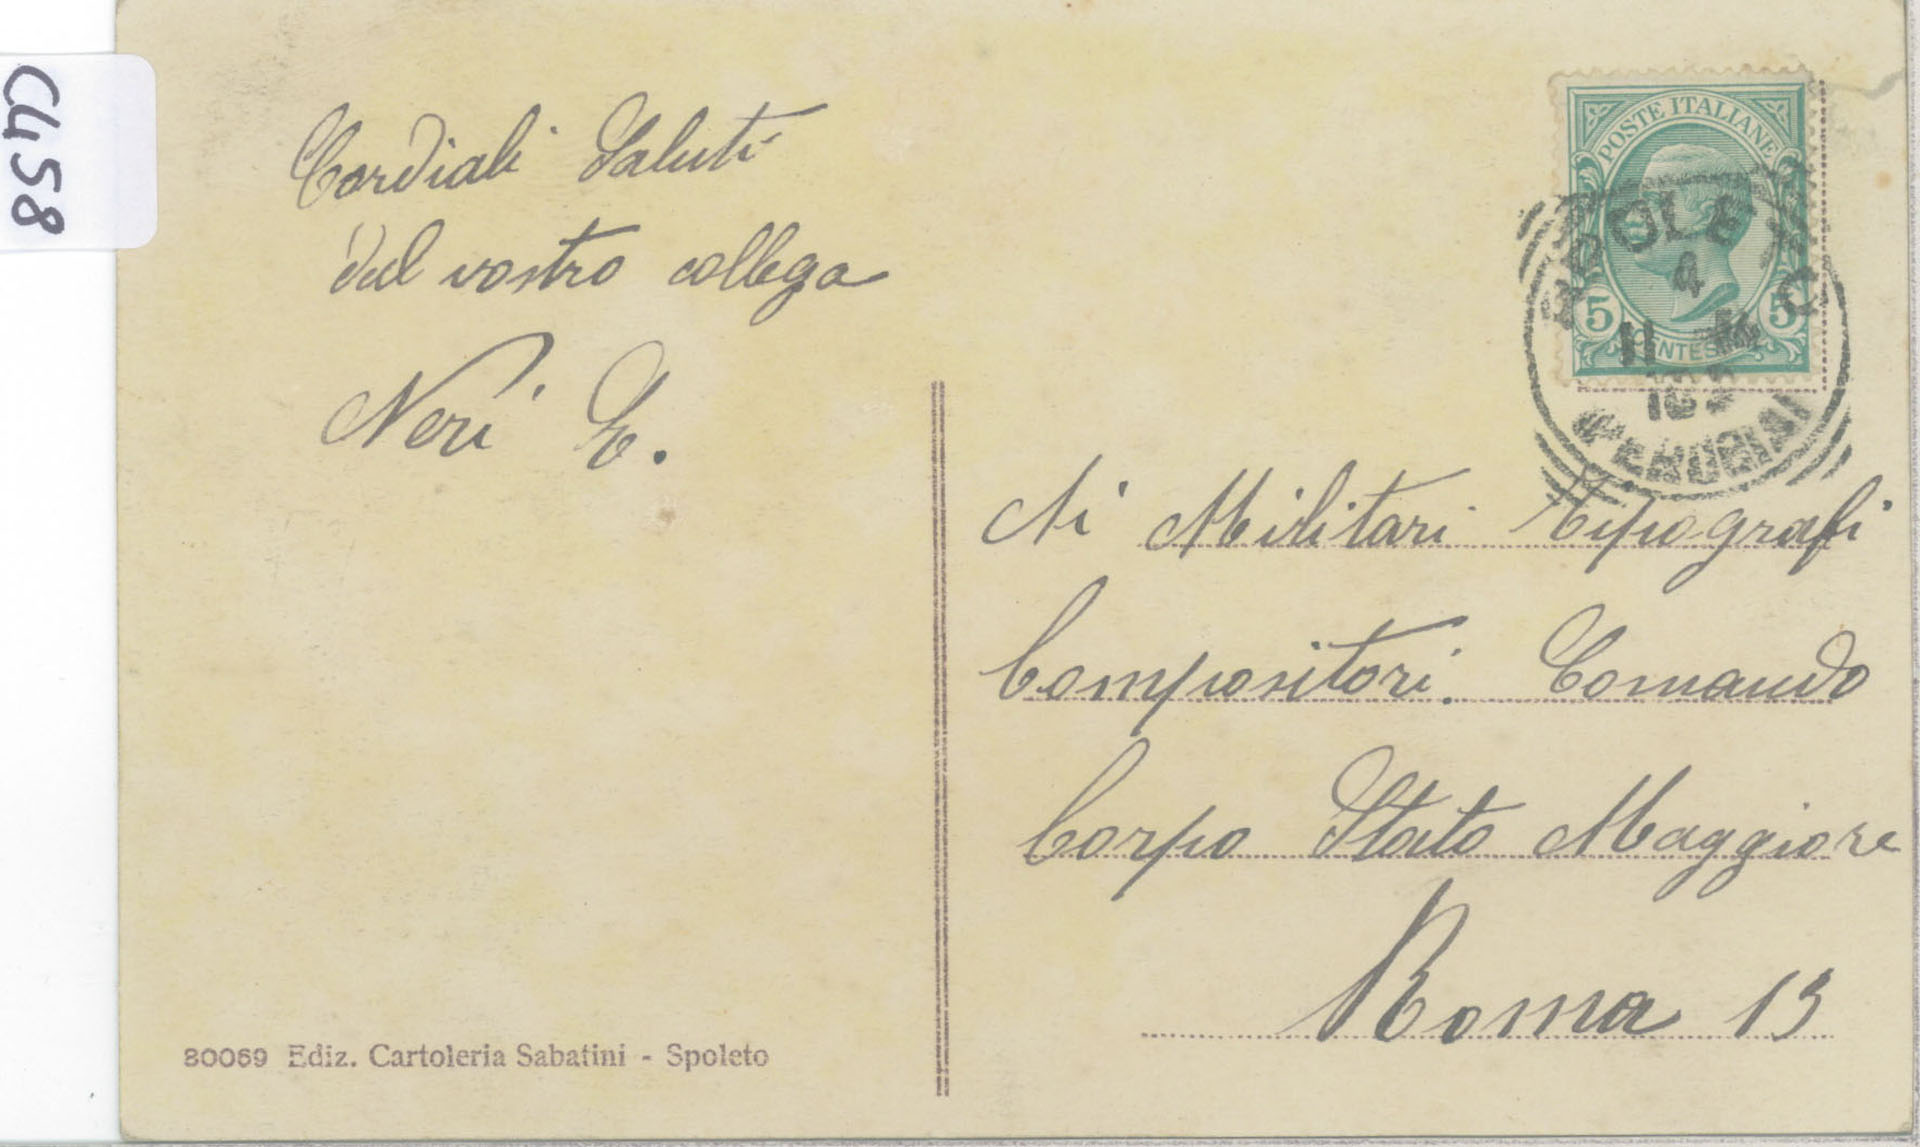 C458
Cordiali Saluti
dal vostro collega
Neri E.
POSTE ITALIANE
5 5
SPOLETO
4
11
(PERUGIA)
Ai Militari Tipografi
Compositori. Comando
Corpo Stato Maggiore
Roma 13
80069 Ediz. Cartoleria Sabatini - Spoleto